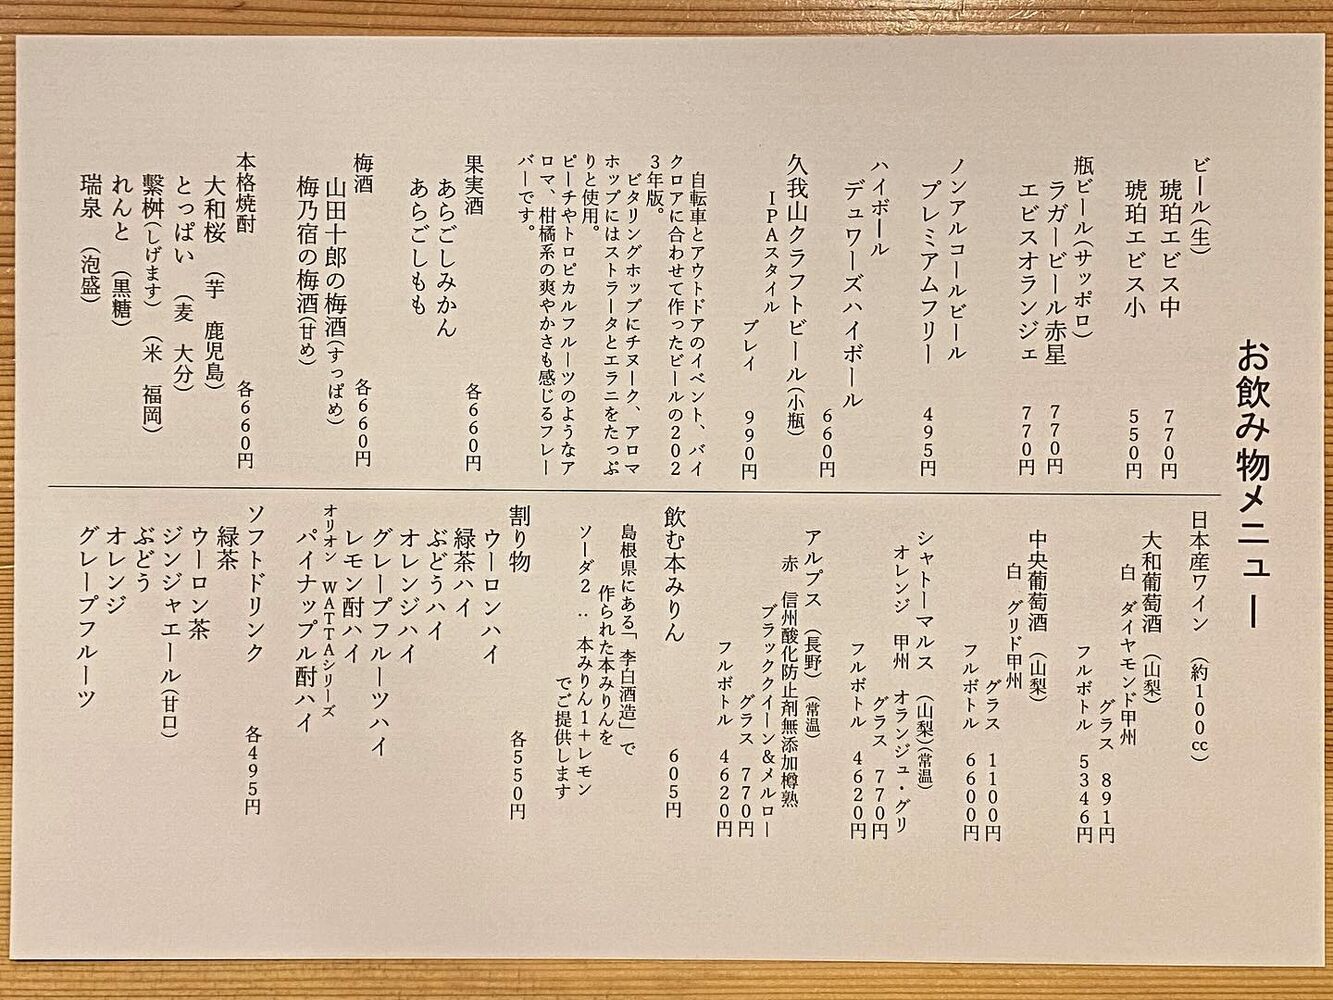 お飲み物メニュー
ビール(生)
琥珀エビス中 770円
琥珀エビス小 550円
瓶ビール(サッポロ)
ラガービール赤星 770円
エビスオランジェ 770円
ノンアルコールビール
プレミアムフリー 495円
ハイボール
デュワーズハイボール 660円
久我山クラフトビール(小瓶)
IPAスタイル ブレイ 990円
自転車とアウトドアのイベント、バイ
クロアに合わせて作ったビールの202
3年版。
ビタリングホップにチヌーク、アロマ
ホップにはストラータとエラニをたっぷ
りと使用。
ピーチやトロピカルフルーツのようなア
ロマ、柑橘系の爽やかさも感じるフレー
バーです。
果実酒 各660円
あらごしみかん
あらごしもも
梅酒 各660円
山田十郎の梅酒(すっぱめ)
梅乃宿の梅酒(甘め)
本格焼酎 各660円
大和桜 (芋 鹿児島)
とっぱい (麦 大分)
繋桝(しげます) (米 福岡)
れんと (黒糖)
瑞泉 (泡盛)
日本産ワイン (約100cc)
大和葡萄酒 (山梨)
白 ダイヤモンド甲州
グラス 891円
フルボトル 5346円
中央葡萄酒 (山梨)
白 グリド甲州
グラス 1100円
フルボトル 6600円
シャトーマルス (山梨)(常温)
オレンジ 甲州 オランジュ・グリ
グラス 770円
フルボトル 4620円
アルプス (長野) (常温)
赤 信州酸化防止剤無添加樽熟
ブラッククイーン&メルロー
グラス 770円
フルボトル 4620円
飲む本みりん 605円
島根県にある「李白酒造」で
作られた本みりんを
ソーダ2:本みりん1+レモン
でご提供します
割り物 各550円
ウーロンハイ
緑茶ハイ
ぶどうハイ
オレンジハイ
グレープフルーツハイ
レモン酎ハイ
オリオン WATTAシリーズ
パイナップル酎ハイ
ソフトドリンク 各495円
緑茶
ウーロン茶
ジンジャエール(甘口)
ぶどう
オレンジ
グレープフルーツ